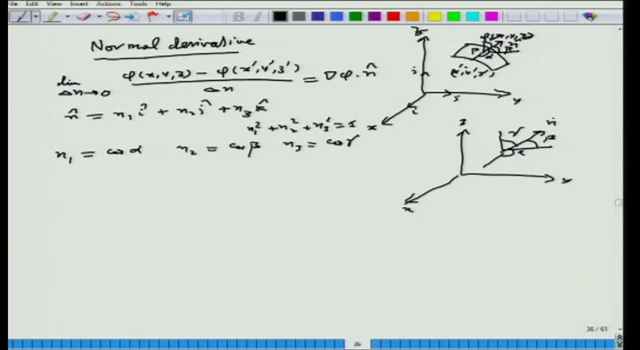 File Edit View Insert Actions Tools Help
Normal derivative
lim Δn→0 φ(x,y,z) - φ(x',y',z') / Δn = ∇φ·n̂
n̂ = n₁ î + n₂ ĵ + n₃ k̂
n₁² + n₂² + n₃² = 1
n₁ = cos α n₂ = cos β n₃ = cos γ
z
φ(x,y,z)
(x',y',z')
y
x
z
n̂
γ
β
α
y
x
36 / 61
36